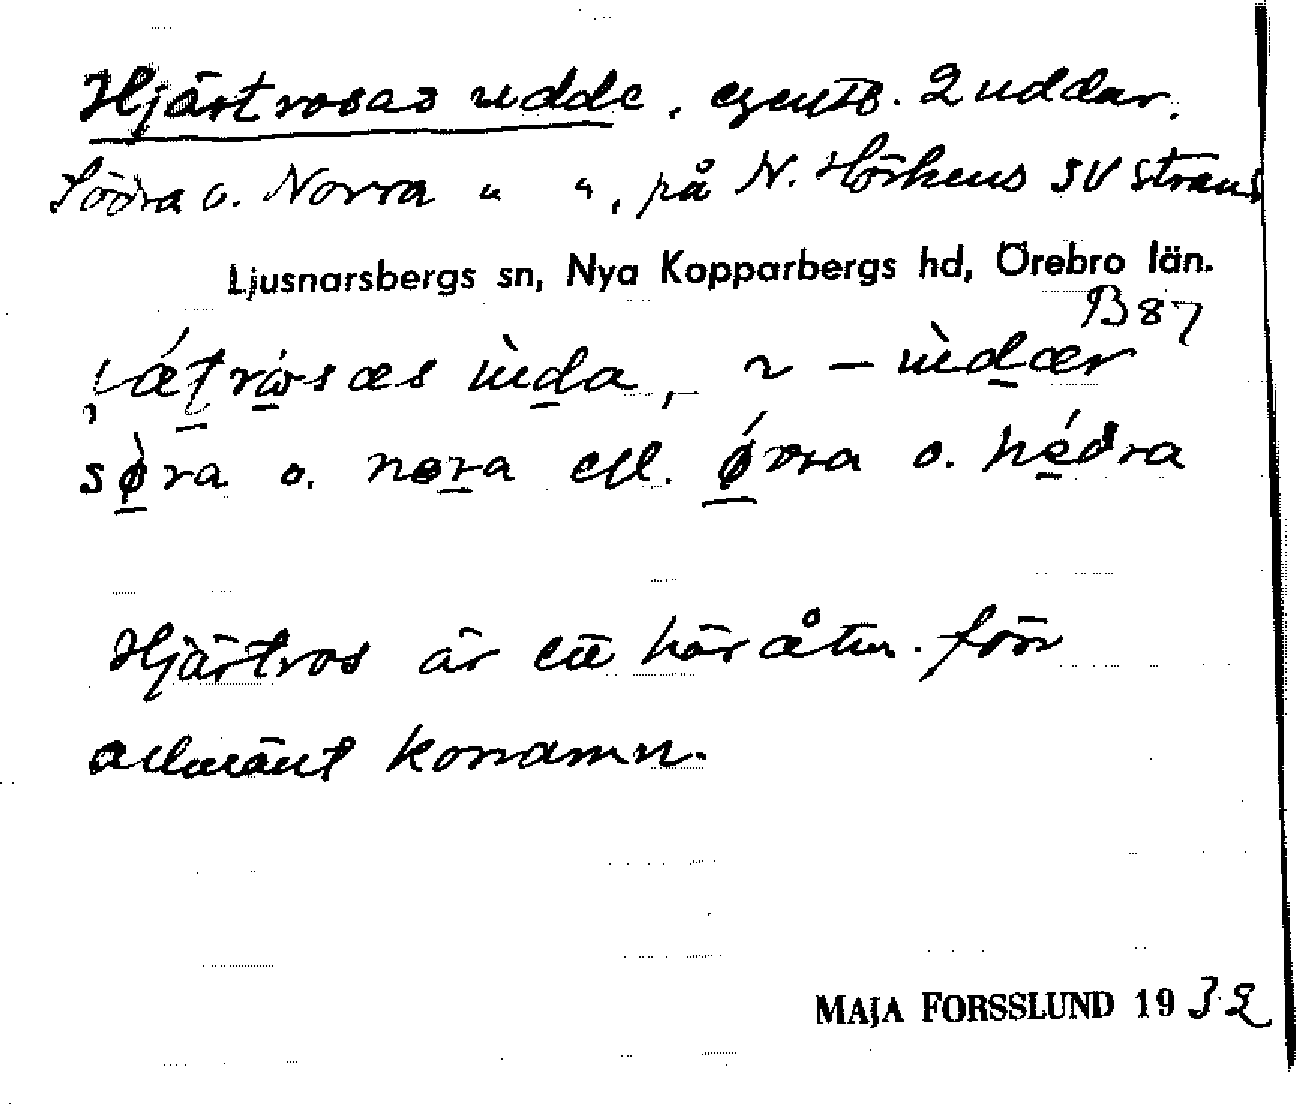 Hjärtrosas udde, egentl. 2 uddar.
Södra o. Norra " ", på N. Hörkens SV strand
Ljusnarsbergs sn, Nya Kopparbergs hd, Örebro län.
B 87
sø̀ra o. nora ell. ǿvra o. nédra
Hjärtros är ett här åtm. förr
allmänt konamn.
MAJA FORSSLUND 1932